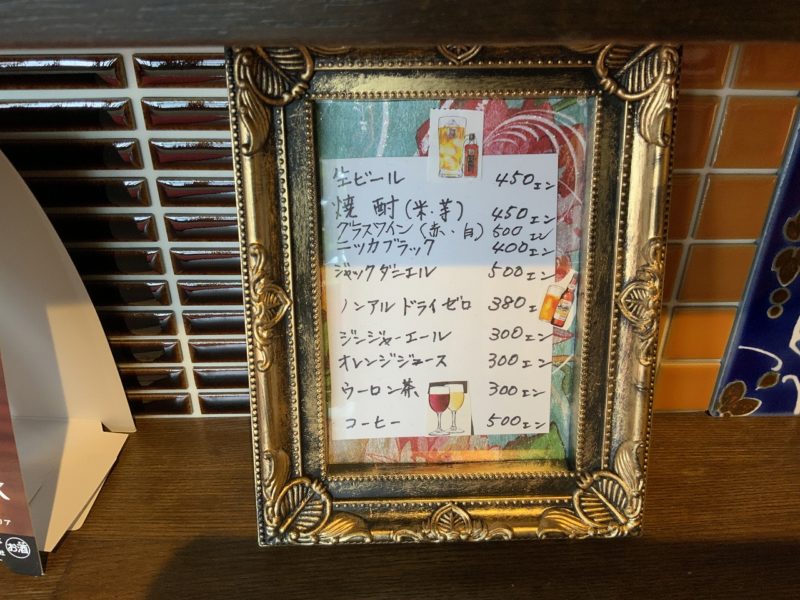 生ビール 450エン
焼酎(米・芋) 450エン
グラスワイン(赤、白) 500エン
ニッカブラック 400エン
ジャックダニエル 500エン
ノンアルドライゼロ 380エ
ジンジャーエール 300エン
オレンジジュース 300エン
ウーロン茶 300エン
コーヒー 500エン
お酒